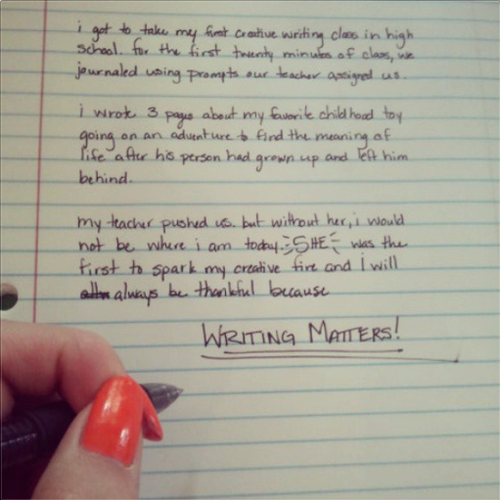 i got to take my first creative writing class in high
school. for the first twenty minutes of class, we
journaled using prompts our teacher assigned us.
i wrote 3 pages about my favorite childhood toy
going on an adventure to find the meaning of
life after his person had grown up and left him
behind.
my teacher pushed us. but without her, i would
not be where i am today. SHE was the
first to spark my creative fire and i will
always be thankful because
WRITING MATTERS!